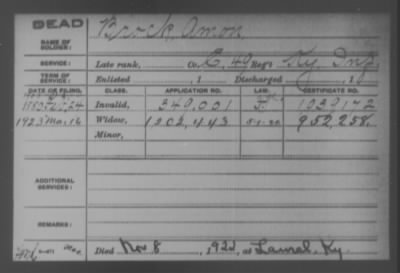 DEAD
NAME OF SOLDIER: Brock, Amon
SERVICE: Late rank, Co. E, 49 Reg't Ky. Inf.
TERM OF SERVICE: Enlisted , 1 Discharged , 1
DATE OF FILING. CLASS. APPLICATION NO. LAW. CERTIFICATE NO.
Invalid, 349,001 1039172
1923 Mar, 16 Widow, 1202,443 952,258.
Minor,
ADDITIONAL SERVICES:
REMARKS:
Died Nov 8, 1922, at Laurel, Ky.